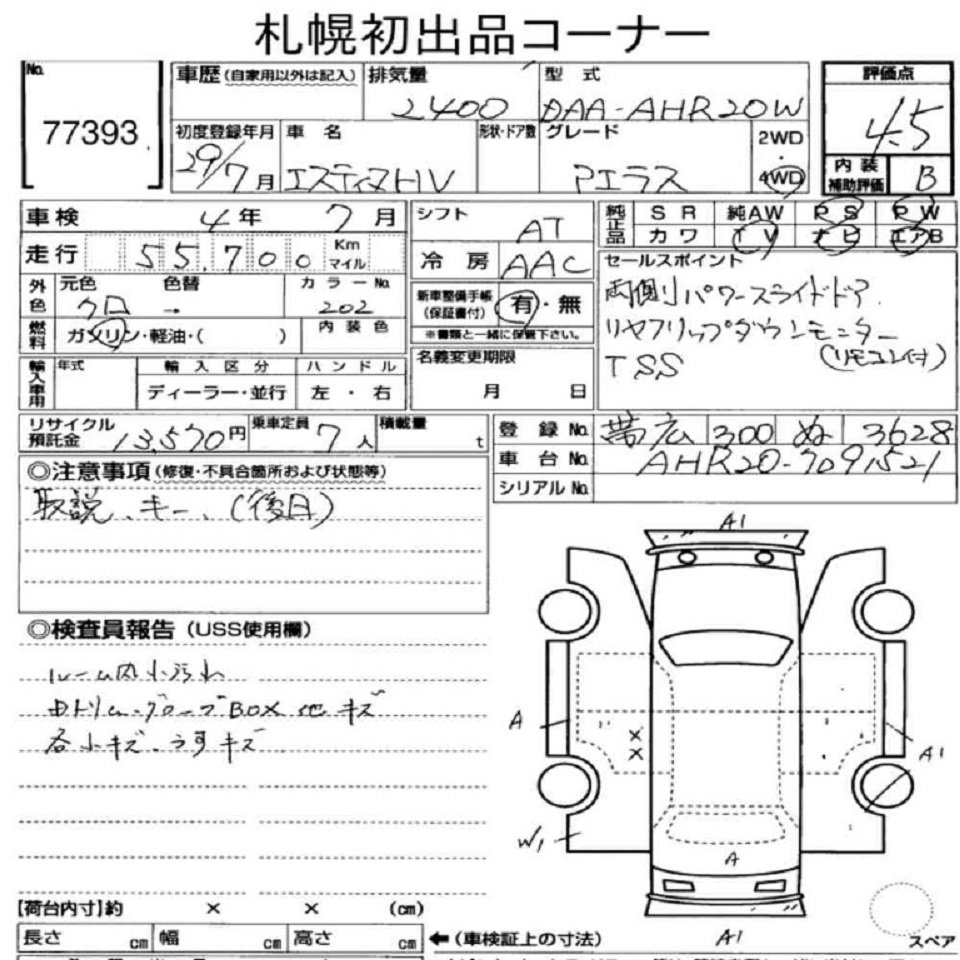 札幌初出品コーナー
No.
77393
車歴(自家用以外は記入)
排気量
2400
型式
DAA-AHR20W
評価点
4.5
初度登録年月
29/7月
車名
エスティマHV
形状・ドア数
グレード
アエラス
2WD
・
4WD
内装
補助評価
B
車検 4年 7月
シフト
AT
純正品
SR 純AW PS PW
カワ TV ナビ エアB
走行 55,700 Km マイル
冷房 AAC
セールスポイント
両側パワースライドドア
リヤフリップダウンモニター
(リモコン付)
TSS
外色
元色 色替 カラーNo.
クロ → 202
新車整備手帳
(保証書付)
有・無
※書類と一緒に保管下さい。
燃料
ガソリン・軽油・( )
内装色
名義変更期限
月 日
輸入車用
年式 輸入区分 ハンドル
ディーラー・並行 左・右
リサイクル
預託金
13,570円
乗車定員
7人
積載量
t
登録No. 帯広 300 ぬ 3628
車台No. AHR20-7091521
シリアルNo.
◎注意事項(修復・不具合箇所および状態等)
取説、キー、(後日)
◎検査員報告(USS使用欄)
ルーム内小汚れ
内トリム・グローブBOX他キズ
各小キズ、うすキズ
A1
A
×
×
A1
W1
A
A1
【荷台内寸】約 × × (cm)
長さ cm 幅 cm 高さ cm
←(車検証上の寸法)
スペア